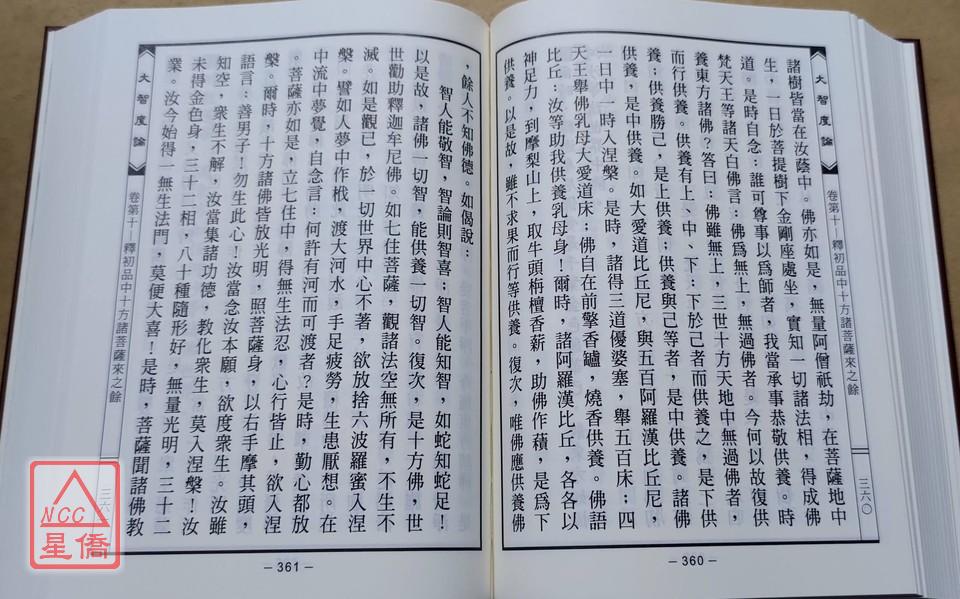 大智度論
卷第十—釋初品中十方諸菩薩來之餘
三六〇
諸樹皆當在汝蔭中。佛亦如是，無量阿僧祇劫，在菩薩地中
生，一日於菩提樹下金剛座處坐，實知一切諸法相，得成佛
道。是時自念：誰可尊事以爲師者，我當承事恭敬供養。時
梵天王等諸天白佛言：佛爲無上，無過佛者。今何以故復供
養東方諸佛？答曰：佛雖無上，三世十方天地中無過佛者，
而行供養。供養有上、中、下：下於己者而供養之，是下供
養；供養勝己，是上供養；供養與己等者，是中供養。諸佛
供養，是中供養。如大愛道比丘尼，與五百阿羅漢比丘尼，
一日中一時入涅槃。是時，諸得三道優婆塞，舉五百床；四
天王舉佛乳母大愛道床；佛自在前擎香罏，燒香供養。佛語
比丘：汝等助我供養乳母身！爾時，諸阿羅漢比丘，各各以
神足力，到摩梨山上，取牛頭栴檀香薪，助佛作𧂐，是爲下
供養。以是故，雖不求果而行等供養。復次，唯佛應供養佛
— 360 —
，餘人不知佛德。如偈說：
智人能敬智，智論則智喜；智人能知智，如蛇知蛇足！
以是故，諸佛一切智，能供養一切智。復次，是十方佛，世
世勸助釋迦牟尼佛。如七住菩薩，觀諸法空無所有，不生不
滅。如是觀已，於一切世界中心不著，欲放捨六波羅蜜入涅
槃。譬如人夢中作栰，渡大河水，手足疲勞，生患厭想。在
中流中夢覺，自念言：何許有河而可渡者？是時，勤心都放
。菩薩亦如是，立七住中，得無生法忍，心行皆止，欲入涅
槃。爾時，十方諸佛皆放光明，照菩薩身，以右手摩其頭，
語言：善男子！勿生此心！汝當念汝本願，欲度衆生。汝雖
知空，衆生不解，汝當集諸功德，教化衆生，莫入涅槃！汝
未得金色身，三十二相，八十種隨形好，無量光明，三十二
業。汝今始得一無生法門，莫便大喜！是時，菩薩聞諸佛教
大智度論
卷第十—釋初品中十方諸菩薩來之餘
三六
— 361 —
NCC
星僑